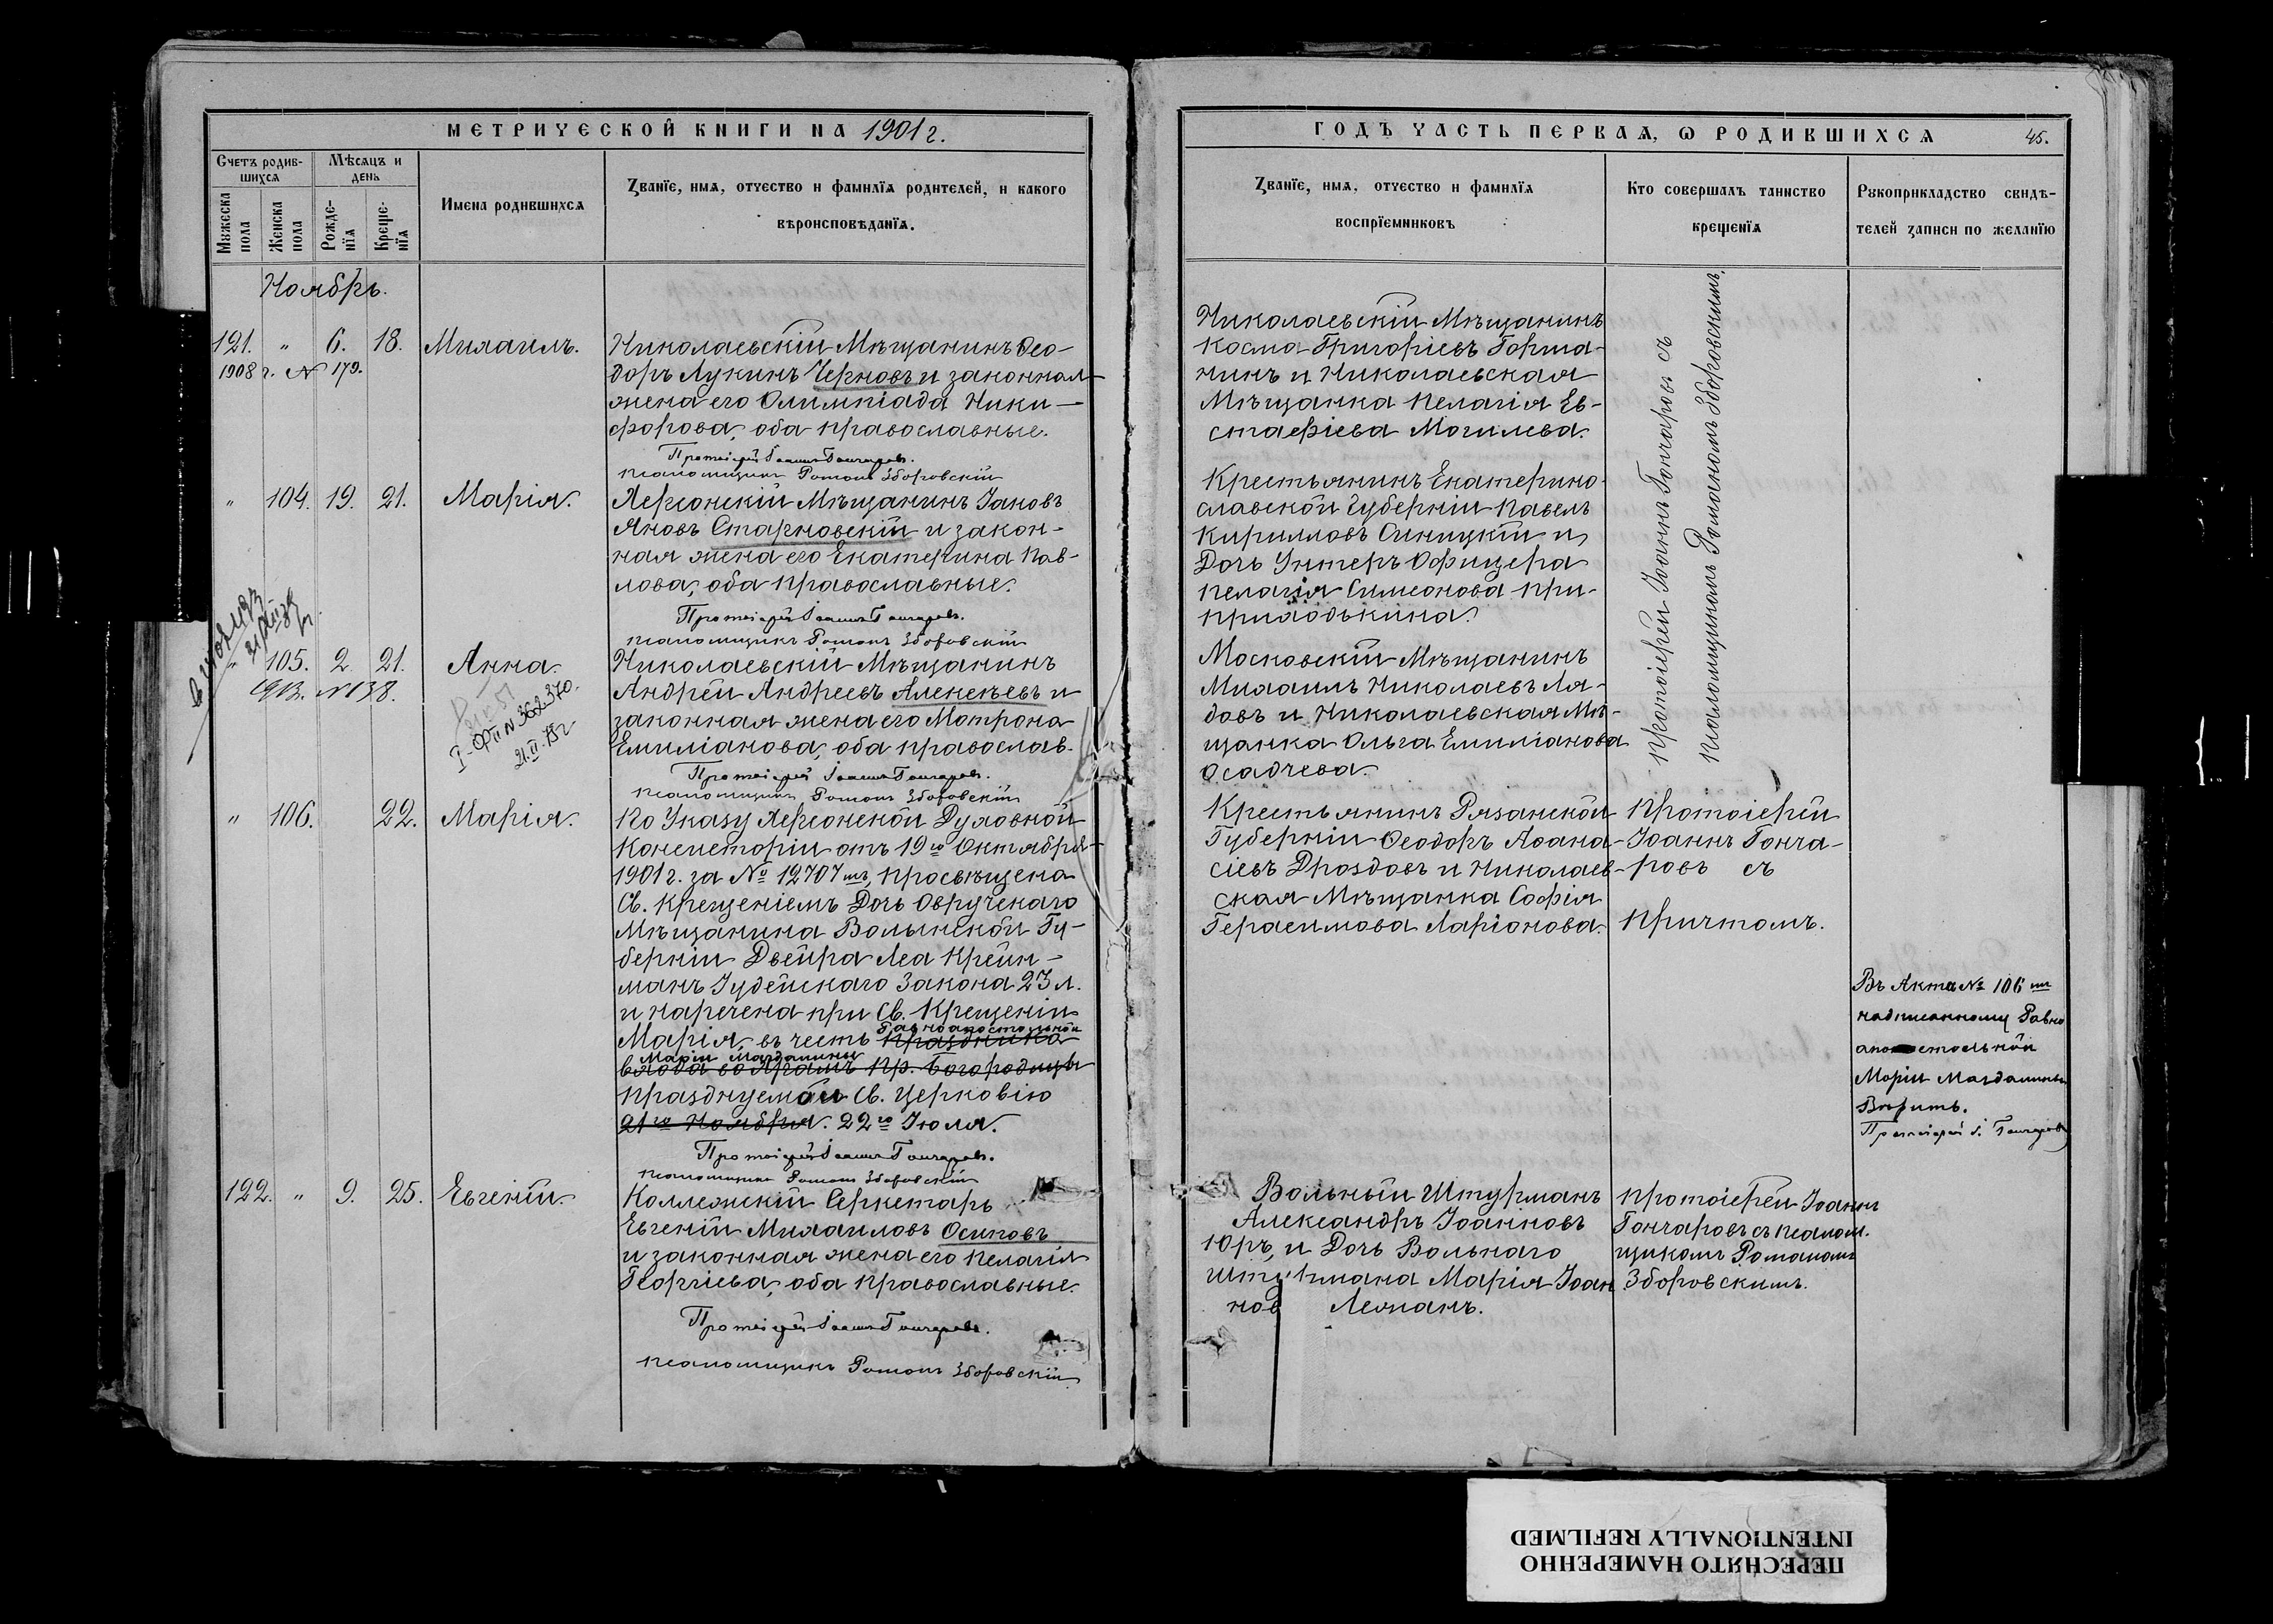 МЕТРИЧЕСКОЙ КНИГИ НА 1901 г.
Счетъ родив-
шихся
Мѣсяцъ и
день
Мужеска
пола
Женска
пола
Рожде-
нїя
Креще-
нїя
Имена родившихся
Званїе, имя, отчество и фамилїя родителей, и какого
вѣроисповѣданїя.
Ноябрь.
121. " 6. 18. Михаилъ.
1908 г. № 179.
Николаевскій Мѣщанинъ Ѳео-
доръ Лукинъ Черновъ и законная
жена его Олимпіада Ники-
форова, оба православные.
Протоіерей Іоаннъ Гончаровъ.
Псаломщикъ Романъ Зборовскій
" 104. 19. 21. Марія.
Херсонскій Мѣщанинъ Іаковъ
Яновъ Старновскій и закон-
ная жена его Екатерина Пав-
лова, оба православные.
Протоіерей Іоаннъ Гончаровъ.
Псаломщикъ Романъ Зборовскій
" 105. 2. 21. Анна.
1913. № 138.
I-ФП № 362370.
21.II.75 г
Николаевскій Мѣщанинъ
Андрей Андреевъ Алексѣевъ и
законная жена его Матрона
Емиліанова, оба православ.
Протоіерей Іоаннъ Гончаровъ.
Псаломщикъ Романъ Зборовскій
" 106. 22. Марія.
По Указу Херсонской Духовной
Консисторіи отъ 19го Октября
1901 г. за № 12707мъ, просвѣщена
Св. Крещеніемъ Дочь Овручскаго
Мѣщанина Волынской Гу-
берніи Двейра Леа Крейн-
манъ Іудейскаго Закона 23 л.
и наречена при Св. Крещеніи
Марія, въ честь праздника
Равноапостольной
Маріи Магдалины
входа во Храмъ Пр. Богородицы
празднуемой Св. Церковію
21го Ноября. 22го Іюля.
Протоіерей Іоаннъ Гончаровъ.
Псаломщикъ Романъ Зборовскій
122. " 9. 25. Евгеній.
Коллежскій Серкетарь
Евгеній Михаиловъ Осиповъ
и законная жена его Пелагія
Георгіева, оба православные.
Протоіерей Іоаннъ Гончаровъ.
Псаломщикъ Романъ Зборовскій
ГОДЪ ЧАСТЬ ПЕРВАЯ, Ѡ РОДИВШИХСЯ
45.
Званїе, имя, отчество и фамилїя
воспрїемниковъ
Кто совершалъ таинство
крещенїя
Рукоприкладство свидѣ-
телей записи по желанїю
Николаевскій Мѣщанинъ
Косма Григоріевъ Горша-
нинъ и Николаевская
Мѣщанка Пелагія Ев-
стафіева Могилева.
Крестьянинъ Екатерино-
славской Губерніи Павелъ
Кирилловъ Синицкій и
Дочь Унтеръ Офицера
Пелагія Симеонова При-
приходькина.
Московскій Мѣщанинъ
Михаилъ Николаевъ Ля-
довъ и Николаевская Мѣ-
щанка Ольга Емиліанова
Осадчева.
Протоіерей Іоаннъ Гончаровъ съ
Псаломщикомъ Романомъ Зборовскимъ.
Крестьянинъ Рязанской
Губерніи Ѳеодоръ Аѳана-
сіевъ Дроздовъ и Николаев-
ская Мѣщанка Софія
Герасимова Ларіонова.
Протоіерей
Іоаннъ Гонча-
ровъ съ
Причтомъ.
Въ Акта № 106мъ
надписанному Равно
апостольной
Маріи Магдалины
Вѣрить.
Протоіерей І. Гончаровъ
Вольный Штурманъ
Александръ Іоанновъ
Юръ, и Дочь Вольнаго
Штурмана Марія Іоан
нов Леманъ.
Протоіерей Іоаннъ
Гончаровъ съ Псалом-
щикомъ Романомъ
Зборовскимъ.
ПЕРЕСНЯТО НАМЕРЕННО
INTENTIONALLY REFILMED